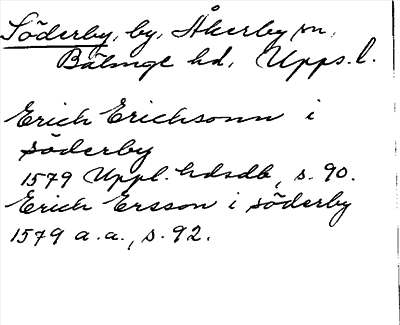 Söderby, by, Åkerby sn,
Bälinge hd, Upps. l.
Erich Erichsonn i
söderby
1579 Uppl. hdsdb, s. 90.
Erich Ersson i söderby
1579 a.a., s. 92.